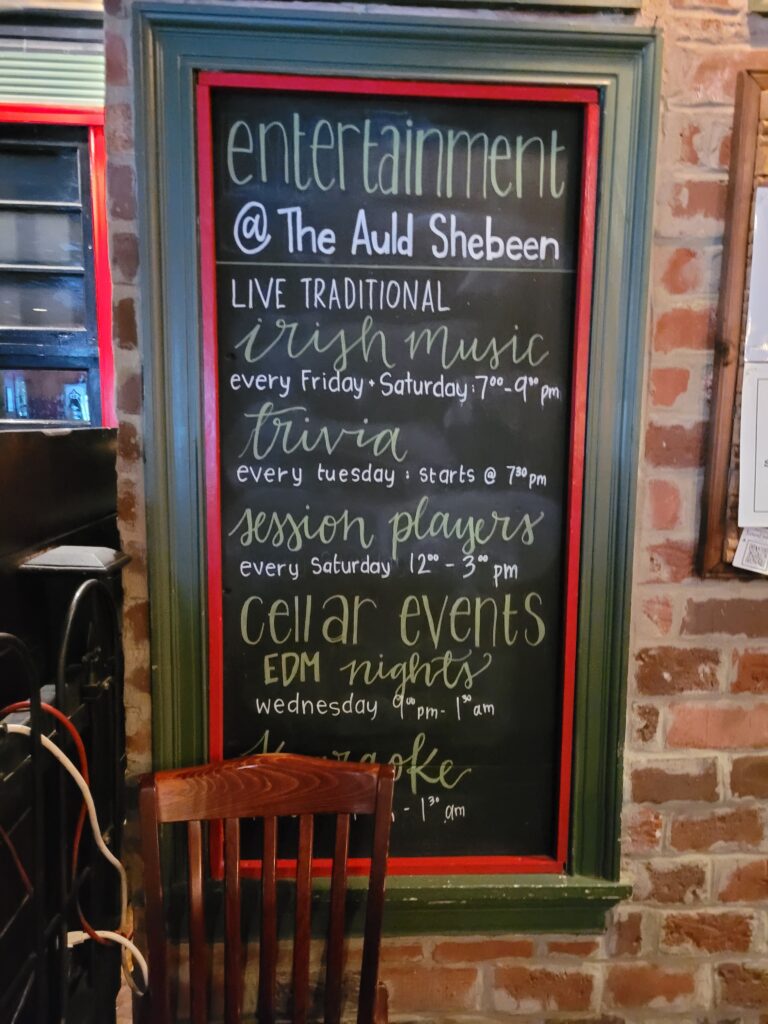 entertainment
@ The Auld Shebeen
LIVE TRADITIONAL
irish music
every Friday + Saturday: 7⁰⁰-9⁰⁰ pm
trivia
every tuesday : starts @ 7³⁰ pm
session players
every Saturday 12⁰⁰ - 3⁰⁰ pm
cellar events
EDM nights
wednesday 9⁰⁰ pm - 1³⁰ am
karaoke
- 1³⁰ am